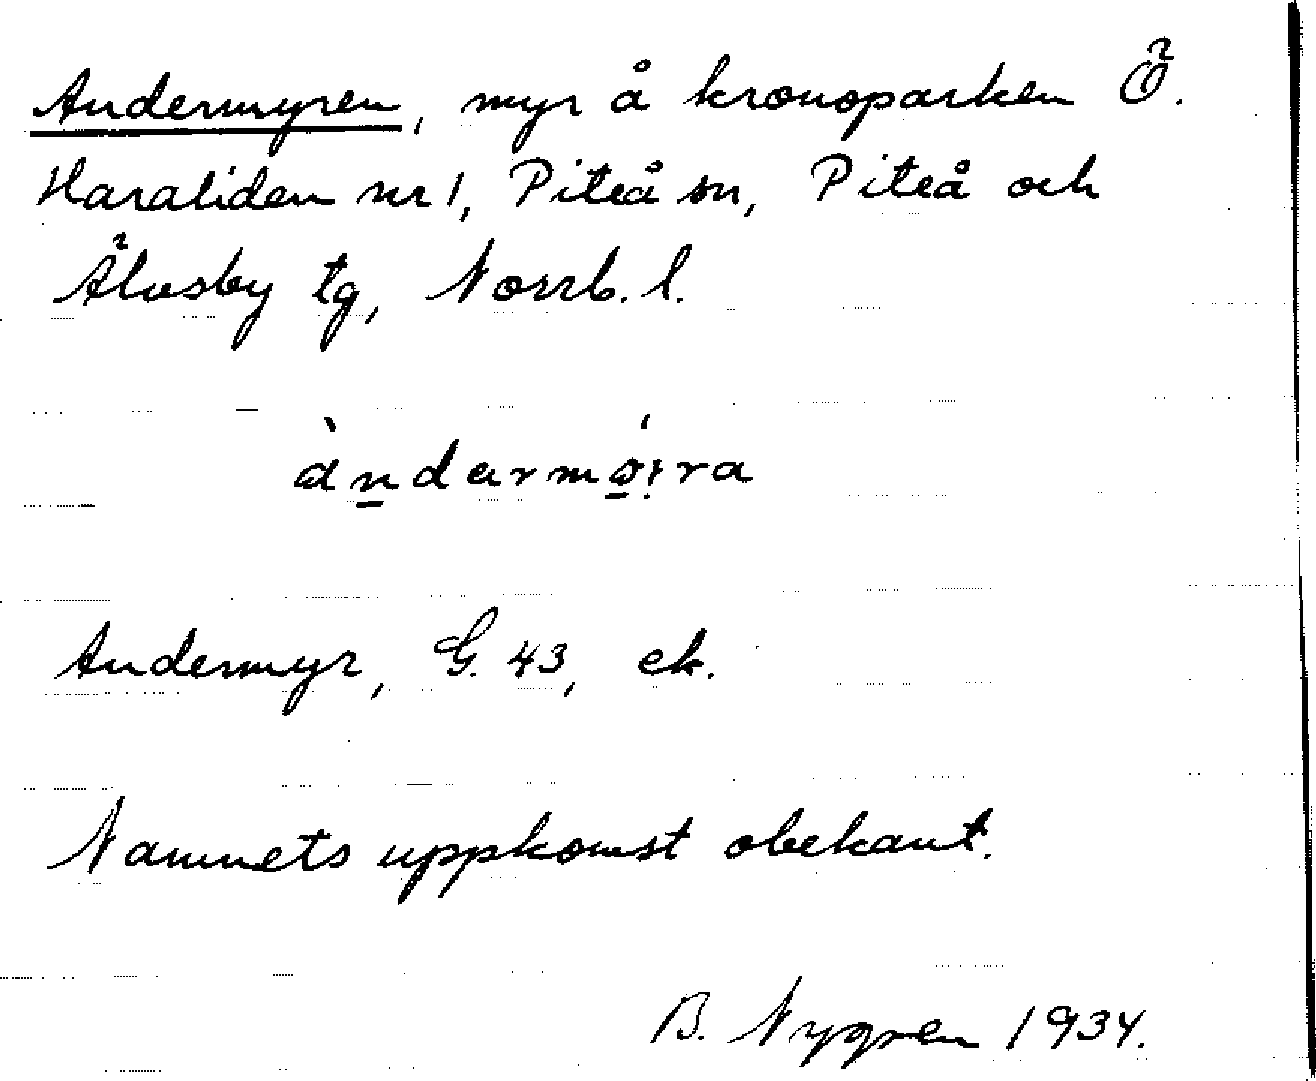 Andermyren, myr å kronoparken Ö.
Haraliden nr 1, Piteå sn, Piteå och
Älvsby tg, Norrb. l.
àndarmǿi̯ra
Andermyr, G. 43, ek.
Namnets uppkomst obekant.
B. Nygren 1934.